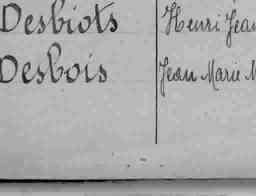 Desbiots Henri Jean
Desbois Jean Marie M